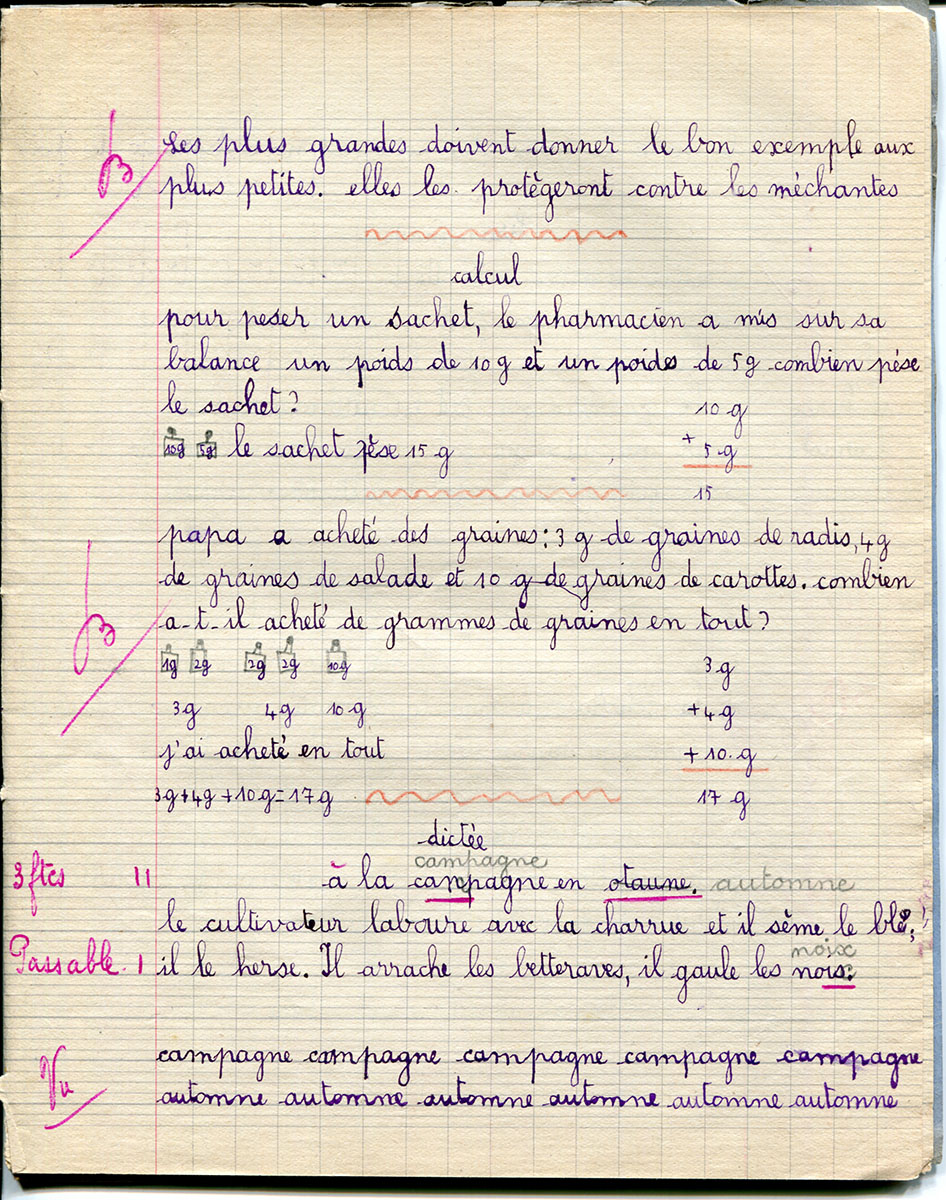 B
Les plus grandes doivent donner le bon exemple aux
plus petites. elles les protègeront contre les méchantes
calcul
pour peser un sachet, le pharmacien a mis sur sa
balance un poids de 10 g et un poids de 5g combien pèse
le sachet?
10 g
10g 5g le sachet pèse 15 g
+ 5 g
15
papa a acheté des graines: 3 g de graines de radis, 4g
de graines de salade et 10 g de graines de carottes. combien
B
a-t-il acheté de grammes de graines en tout?
1g 2g 2g 2g 10g
3 g
3g 4g 10 g
+4 g
j'ai acheté en tout
+ 10 g
3g+4g+10g=17g
17 g
dictée
campagne
3 ftes 11 à la canpagne en otaune. automne
le cultivateur laboure avec la charrue et il sème le blé,
noix
Passable. 1 il le herse. Il arrache les betteraves, il gaule les nois.
Vu
campagne campagne campagne campagne campagne
automne automne automne automne automne automne